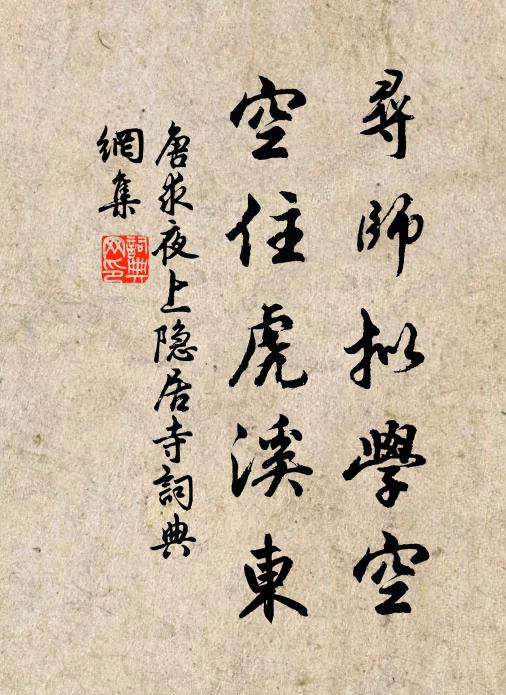 尋師拟學空
空住虎溪東
唐求夜上隐居寺詞典
網集
詞典网印